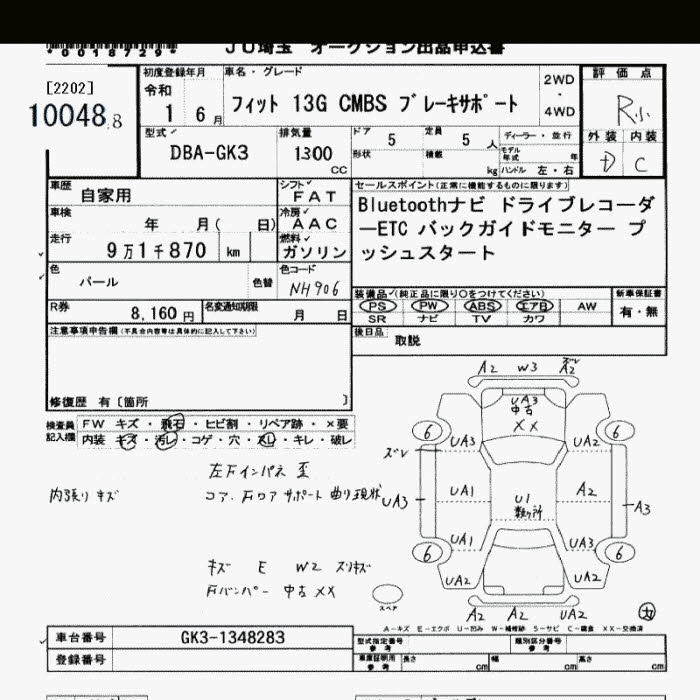 *0018729*
JU埼玉 オークション出品申込書
[2202]
10048.8
初度登録年月
令和
1 6月
車名・グレード
フィット 13G CMBS ブレーキサポート
2WD
・
4WD
評価点
R小
外装 内装
D C
型式
DBA-GK3
排気量
1300
CC
ドア 5
定員 5 人
形状
積載 kg
ディーラー・並行
モデル年式 年
ハンドル 左・右
車歴
自家用
シフト
FAT
車検
年 月( 日)
冷房
AAC
走行
9万1千870 km
燃料
ガソリン
色
パール
色替
色コード
NH906
R券
8,160円
名変通知期限
月 日
セールスポイント(正常に機能するものに限ります)
Bluetoothナビ ドライブレコーダ
ーETC バックガイドモニター プ
ッシュスタート
装備品(純正品に限り○をつけてください)
PS PW ABS エアB AW
SR ナビ TV カワ
新車保証書
有・無
後日品
取説
注意事項申告欄(不具合内容等は具体的に記入して下さい)
修復歴 有〔箇所 〕
検査員
記入欄
FW キズ・飛石・ヒビ割・リペア跡・×要
内装 キズ・汚レ・コゲ・穴・スレ・キレ・破レ
左Fインパネ 歪
内張り キズ
コア.右ロアサポート 曲り現状
キズ E W2 スリキズ
Fバンパー 中古 XX
A2 W3 ズレ A2
UA3
中古
XX
6 6
ズレ
UA3 UA2
UA3 UA1 U1 A2 A3
UA1 UA3
6 6
UA2 UA2
スペア
A2 A2 UA2
A-キズ E-エクボ U-凹み W-補修跡 S-サビ C-腐食 XX-交換済
車台番号
GK3-1348283
登録番号
型式指定番号
類別区分番号
車庫証明用
参考
長さ cm
幅 cm
高さ cm